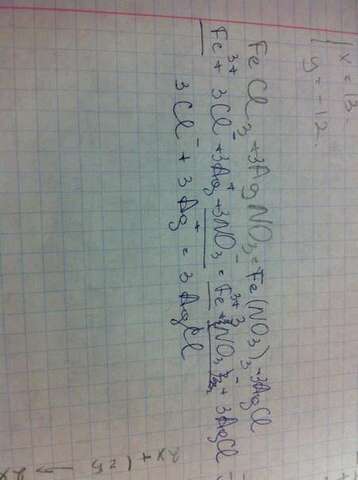 x = 13
y = -12.
FeCl₃ + 3AgNO₃ = Fe(NO₃)₃ + 3AgCl
Fe³⁺ + 3Cl⁻ + 3Ag⁺ + 3NO₃⁻ = Fe³⁺ + 3NO₃⁻ + 3AgCl
3Cl⁻ + 3Ag⁺ = 3AgCl